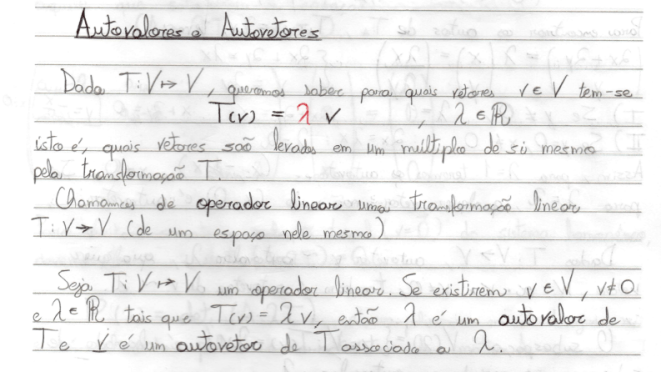 Autovalores e Autovetores
Dada T: V ↦ V, queremos saber para quais vetores v ∈ V tem-se
T(v) = λ v , λ ∈ ℝ
isto é, quais vetores são levados em um múltiplo de si mesmo
pela transformação T.
Chamamos de operador linear uma transformação linear
T: V → V (de um espaço nele mesmo)
Seja T: V ↦ V um operador linear. Se existirem v ∈ V, v ≠ 0
e λ ∈ ℝ tais que T(v) = λ v, então λ é um autovalor de
T e v é um autovetor de T associado a λ.